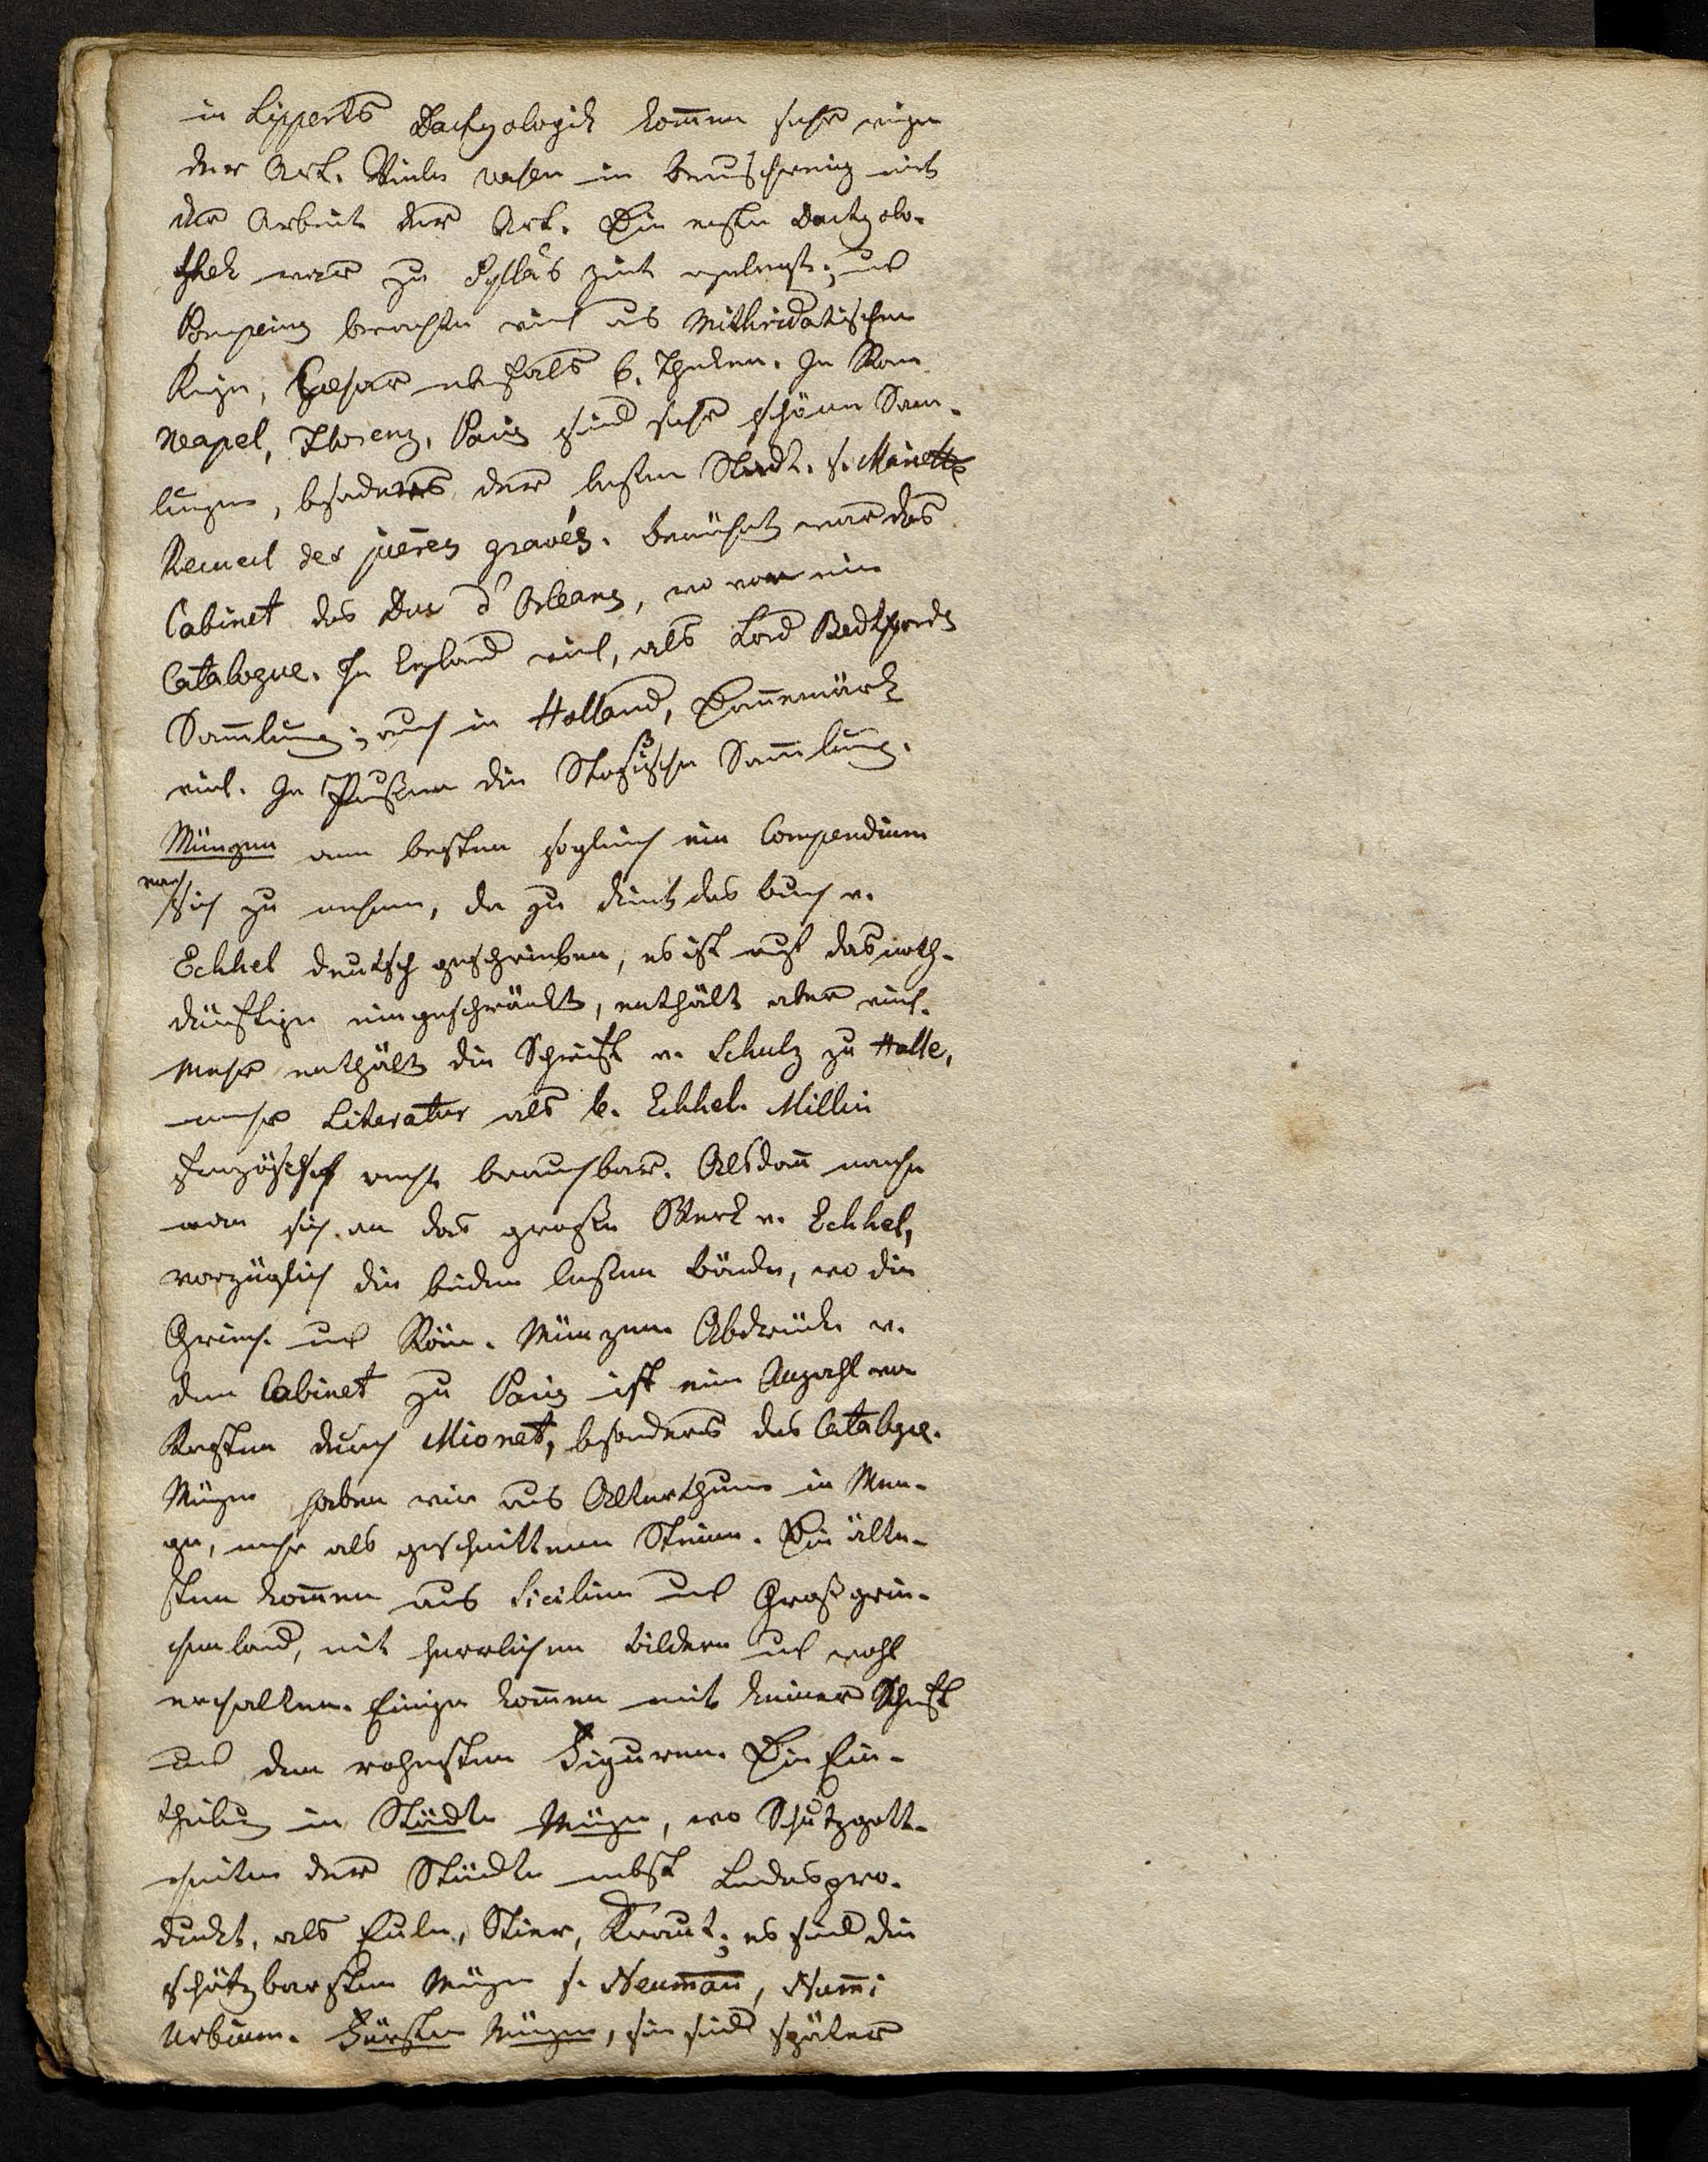 in Lipperts Dactyologik kom̅en sehr einige
der Art. Viele Vasen in Braunschweig mit
der Arbeit der Art. Die erste Dactyolo-
thek war zu Sylla's Zeit angelegt; und
Pompeius brachte viel aus Mithridatischen
Kriege, Caesar ebenfals 6. Theken. In Rom
Neapel, Florenz, Paris sind sehr schöne Sam-
lungen, besonders der lezten Stadt. s. Mariette
Recueil des pierres gravés. Berühmt war das
Cabinet des Duc d'Orleans, wovon ein
Catalogue. In England viel, als Lord Bedfords
Sam̅lung; auch in Holland, Dännemark
viel. In Preußen die Stoschische Sam̅lung.
Münzen am besten sogleich ein Compendium
vor
sich zu nehmen, da zu dient das Buch v.
Eckhel deutsch geschrieben, es ist auf das noth-
dürftige eingeschränkt, enthält aber viel.
Mehr enthält die Schrift v. Schulz zu Halle,
mehr Literatur als b. Eckhel. Millin
französisch recht brauchbar. Alsdan̅ mache
man sich an das große Werk v. Eckhel,
vorzüglich die beiden lezten Bände, wo die
Griech. und Röm. Münzen. Abdrücke v.
dem Cabinet zu Paris ist eine Anzahl von
Kasten durch Mionet, besonders das Catalogue.
Münzen haben wir aus Alterthum in Men-
ge, mehr als geschnittene Steine. Die älte-
sten kom̅en aus Sicilien und Großgrie-
chenland, mit herrlichen Bildern und wohl
erhalten. Einige kom̅en mit keiner Schrift
und den rohesten Figuren. Die Ein-
theilung in Städte Münzen, wo Schutzgott-
heiten der Städte nebst Landespro-
dukt, als Eule, Stier, Kraut; es sind die
schätzbarsten Münzen s. Neuman̅, Num̅i
Urbium. Fürsten Münzen, sie sind später